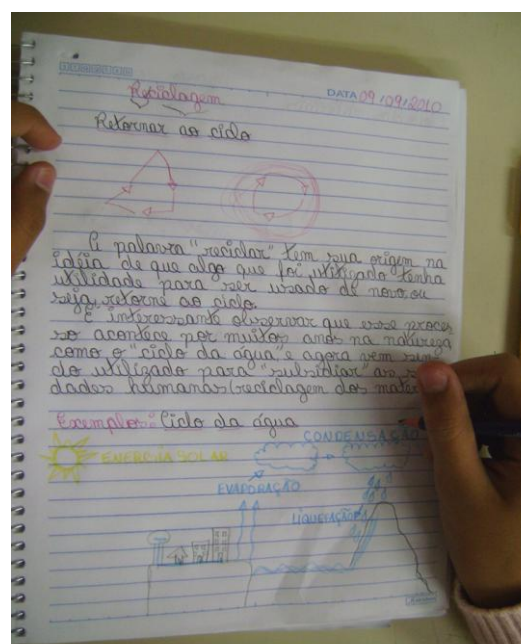 Reciclagem
DATA 09/09/2010
Retornar ao ciclo
A palavra "reciclar" tem sua origem na
idéia de que algo que foi utilizado tenha
utilidade para ser usado de novo ou
seja, retorne ao ciclo.
É interessante observar que esse proces
so acontece por muitos anos na natureza
como o "ciclo da água" e agora vem sen
do utilizado para "subsidiar" as
dades humanas (reciclagem dos mater
Exemplo: Ciclo da água
CONDENSAÇÃO
ENERGIA SOLAR
EVAPORAÇÃO
LIQUEFAÇÃO